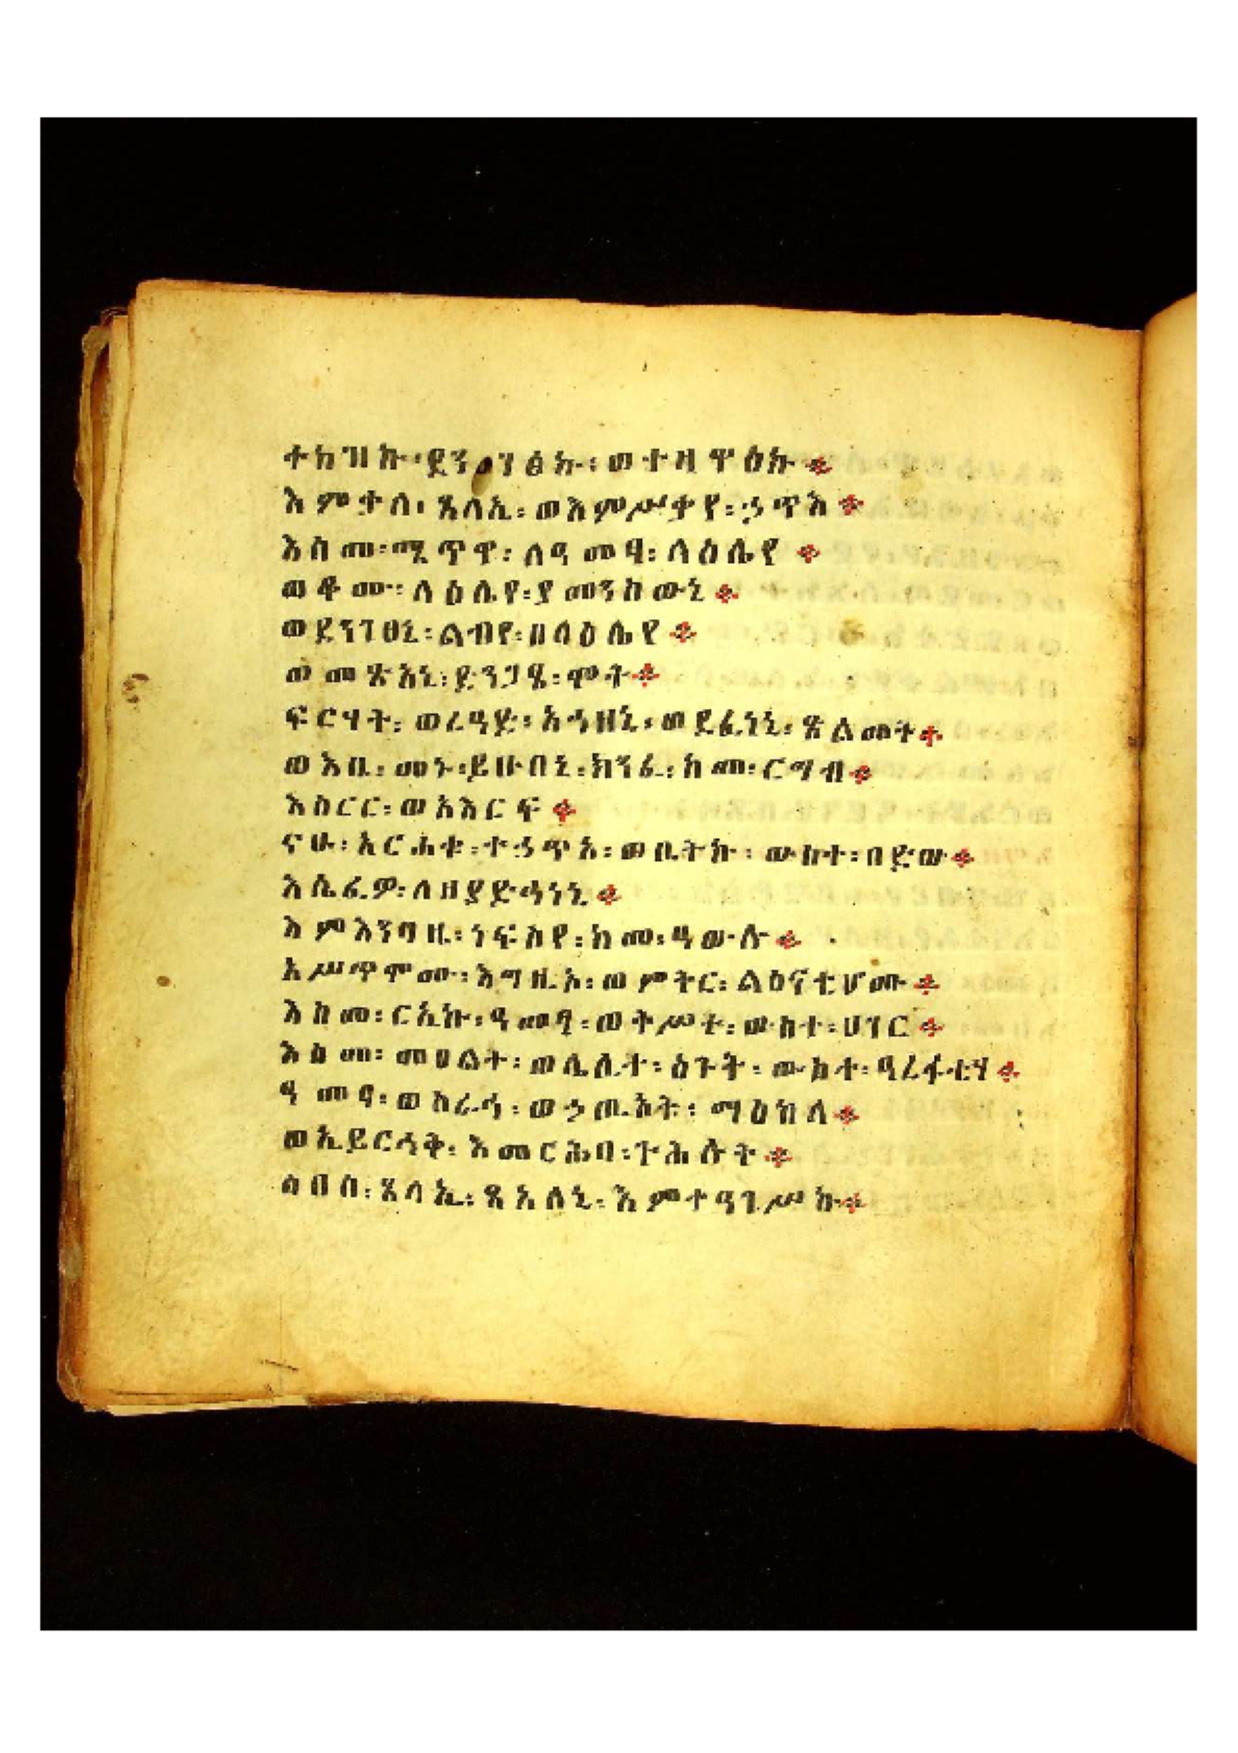 ተከዝኩ፡ ደንገፅኩ፡ ወተዛዋዕኩ ።
እምቃለ፡ ጸላኢ፡ ወእምሥቃየ፡ ኃጥእ ።
እስመ፡ ሜጥዋ፡ ለዓመፃ፡ ላዕሌየ ።
ወቆሙ፡ ላዕሌየ፡ ያመንስውኒ ።
ወደንገፀኒ፡ ልብየ፡ በላዕሌየ ።
ወመጽአኒ፡ ድንጋፄ፡ ሞት ።
ፍርሃት፡ ወረዓድ፡ አኀዘኒ፡ ወደፈነኒ፡ ጽልመት ።
ወእቤ፡ መኑ፡ ይሁበኒ፡ ክንፈ፡ ከመ፡ ርግብ ።
እስርር፡ ወአእርፍ ።
ናሁ፡ አርሐቁ፡ ተኃጥአ፡ ወቤትኩ፡ ውስተ፡ በድው ።
እሴፈዎ፡ ለዘያድኅነኒ ።
እምእንግዚ፡ ነፍስየ፡ ከመ፡ ዓውሎ ።
አሥጥሞሙ፡ እግዚኦ፡ ወምትር፡ ልዕናቲሆሙ ።
እስመ፡ ርኢኩ፡ ዓመፃ፡ ወትሥተ፡ ውስተ፡ ሀገር ።
እስመ፡ መዐልተ፡ ወሌሊተ፡ ዕጉት፡ ውስተ፡ ዓረፋቲሃ ።
ዓመፃ፡ ወስራኅ፡ ወኃጢአት፡ ማዕከለ ።
ወኢይርኅቅ፡ እመርሕባ፡ ተሕሉት ።
ሶበሰ፡ ጸላኢ፡ ጸአለኒ፡ እምተዓገሥኩ ።